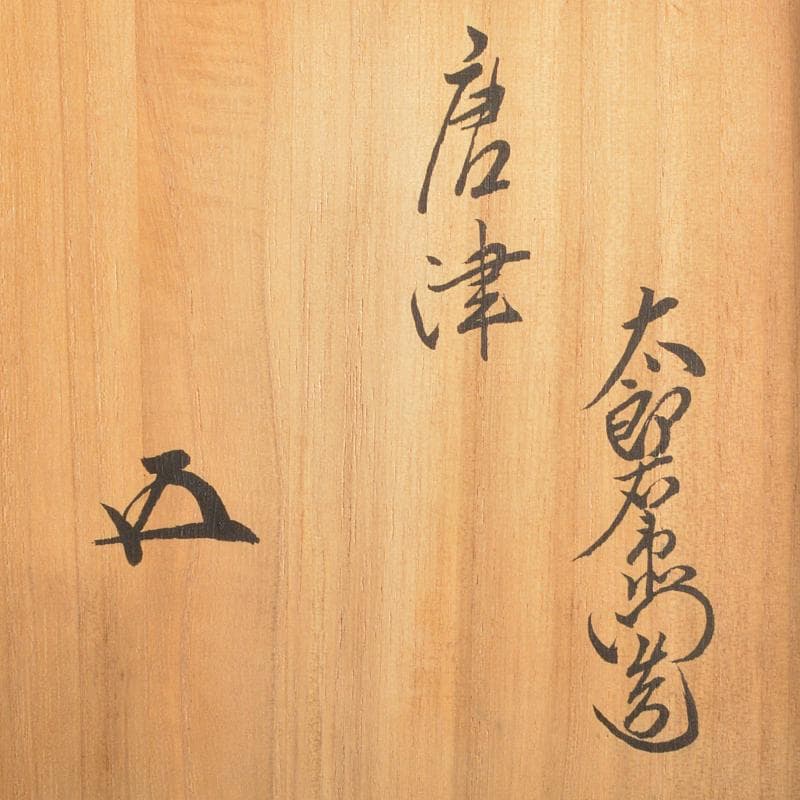 太郎右衛門造
唐津